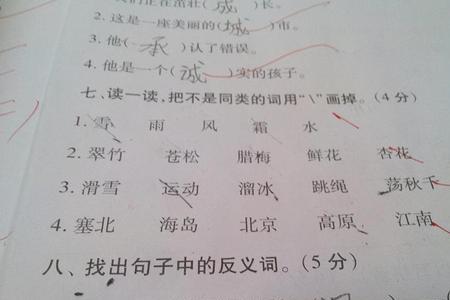 们正在茁壮(成)长。
2. 这是一座美丽的(城)市。
3. 他(承)认了错误。
4. 他是一个(诚)实的孩子。
七、读一读，把不是同类的词用“\”画掉。(4 分)
1. 雪 雨 风 霜 水
2. 翠竹 苍松 腊梅 鲜花 杏花
3. 滑雪 运动 溜冰 跳绳 荡秋千
4. 塞北 海岛 北京 高原 江南
八、找出句子中的反义词。(5 分)